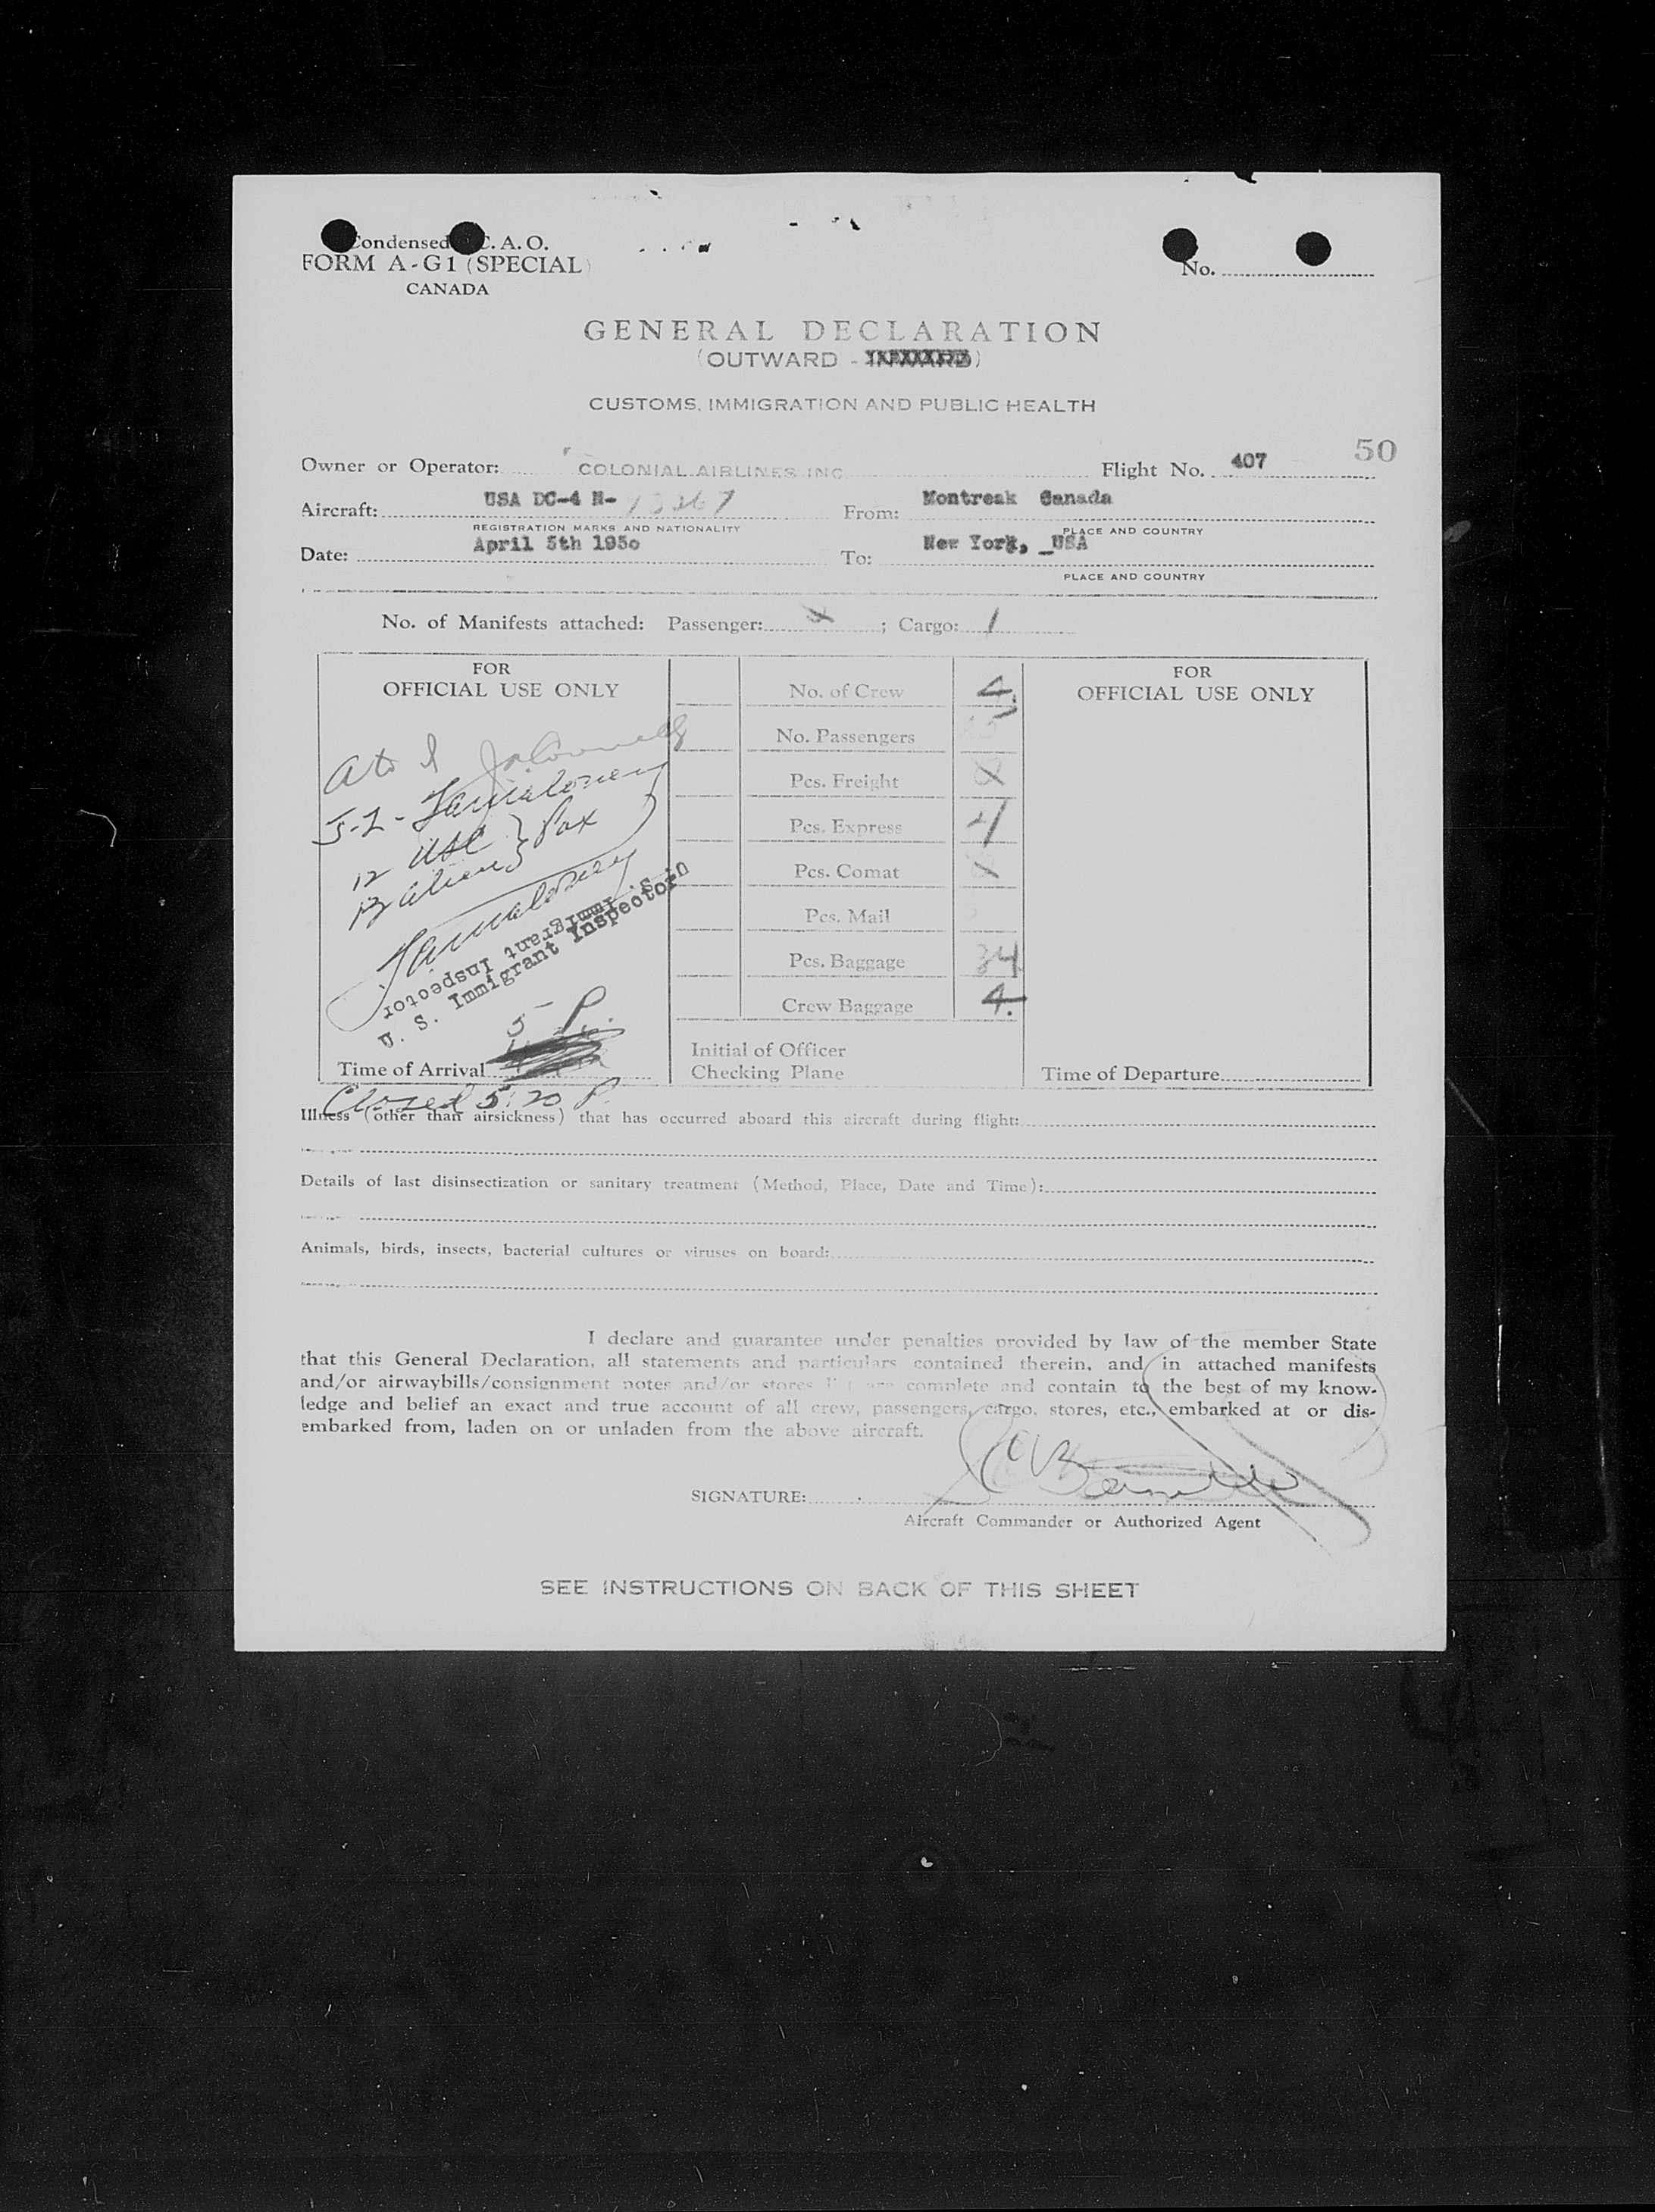 Condensed C. A. O.
FORM A-G1 (SPECIAL)
CANADA
No.
GENERAL DECLARATION
(OUTWARD - INWARD)
CUSTOMS, IMMIGRATION AND PUBLIC HEALTH
50
Owner or Operator: COLONIAL AIRLINES INC Flight No. 407
Aircraft: USA DC-4 N- From: Montreak Canada
REGISTRATION MARKS AND NATIONALITY PLACE AND COUNTRY
Date: April 5th 195o To: New York, _USA
PLACE AND COUNTRY
No. of Manifests attached: Passenger: ; Cargo: 1
FOR
OFFICIAL USE ONLY
12 USC } Pax
13 aliens
U. S. Immigrant Inspector
U. S. Immigrant Inspector
5 - P.
Time of Arrival
Closed 5:20 P.
No. of Crew 4
No. Passengers
Pcs. Freight
Pcs. Express
Pcs. Comat
Pcs. Mail
Pcs. Baggage 34
Crew Baggage 4
Initial of Officer
Checking Plane
FOR
OFFICIAL USE ONLY
Time of Departure
Illness (other than airsickness) that has occurred aboard this aircraft during flight:
Details of last disinsectization or sanitary treatment (Method, Place, Date and Time):
Animals, birds, insects, bacterial cultures or viruses on board:
I declare and guarantee under penalties provided by law of the member State
that this General Declaration, all statements and particulars contained therein, and in attached manifests
and/or airwaybills/consignment notes and/or stores list are complete and contain to the best of my know-
ledge and belief an exact and true account of all crew, passengers, cargo, stores, etc., embarked at or dis-
embarked from, laden on or unladen from the above aircraft.
SIGNATURE:
Aircraft Commander or Authorized Agent
SEE INSTRUCTIONS ON BACK OF THIS SHEET